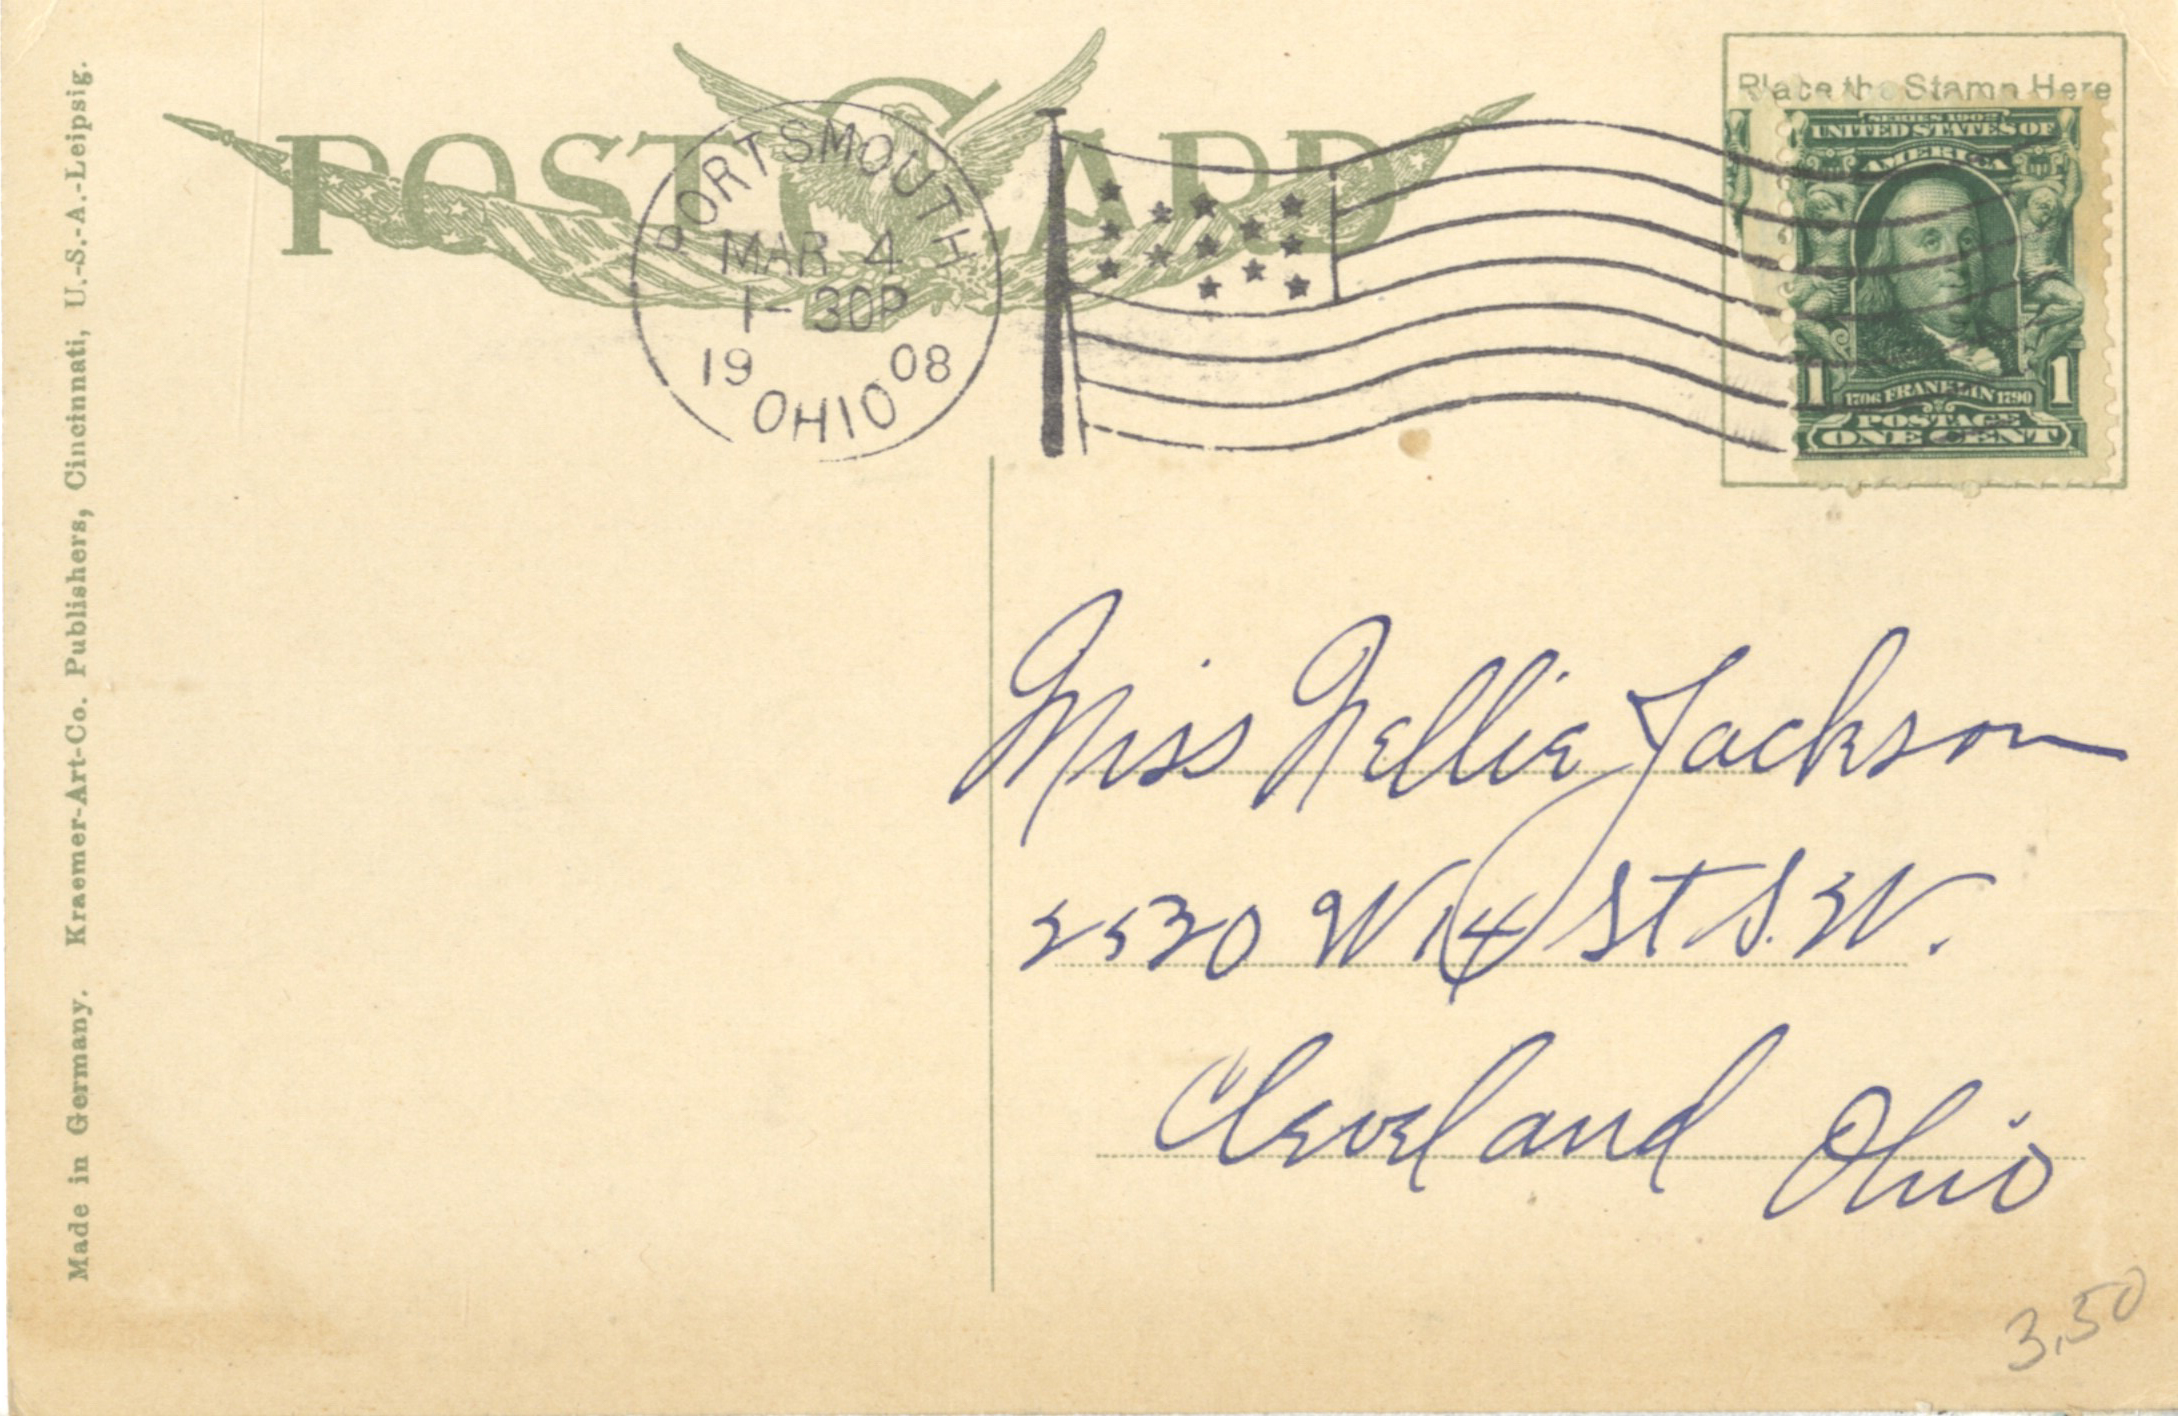 POST CARD
Place the Stamp Here
SERIES 1902
UNITED STATES OF
AMERICA
1 1
1706 FRANKLIN 1790
POSTAGE
ONE CENT
PORTSMOUTH
MAR 4
1-30P
19 08
OHIO
Miss Nellie Jackson
2530 W 14 St S.W.
Cleveland Ohio
3.50
Made in Germany. Kraemer-Art-Co. Publishers, Cincinnati, U.-S.-A.-Leipsig.